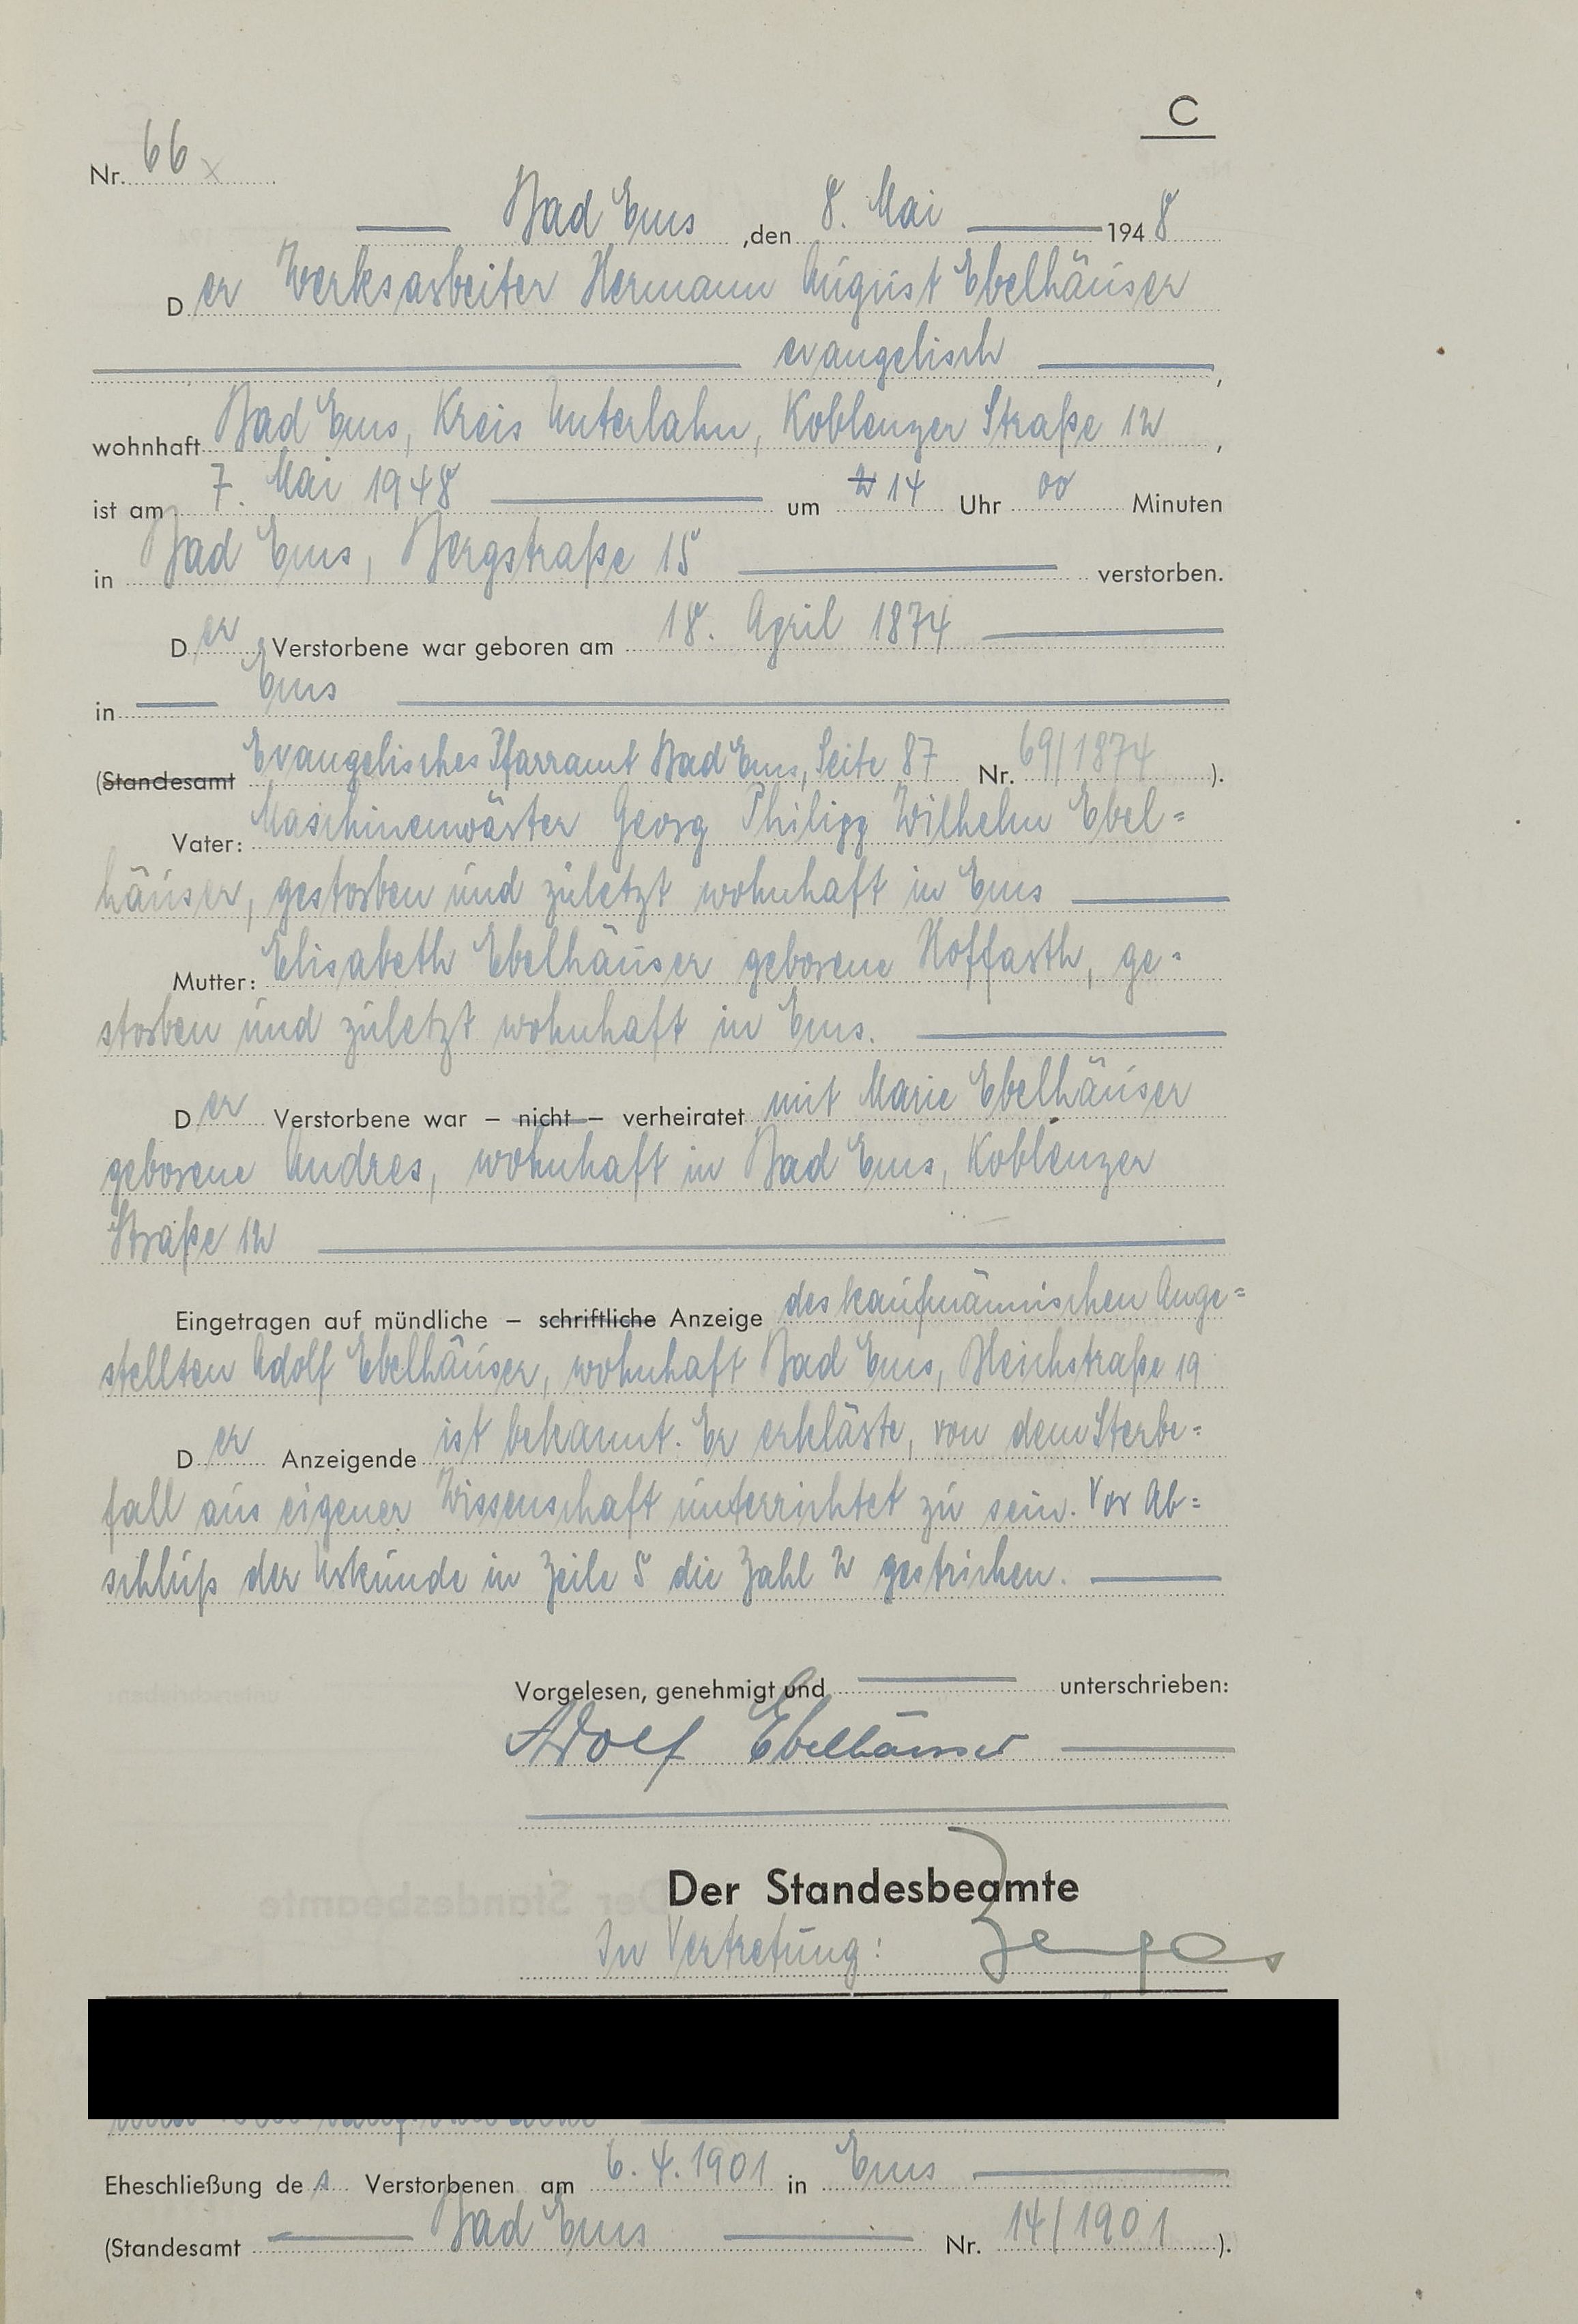 C
Nr. 66 x
Bad Ems, den 8. Mai 1948
Der Werksarbeiter Hermann August Ebelhäuser
evangelisch,
wohnhaft Bad Ems, Kreis Unterlahn, Koblenzer Straße 12,
ist am 7. Mai 1948 um 2 14 Uhr 00 Minuten
in Bad Ems, Bergstraße 15 verstorben.
Der Verstorbene war geboren am 18. April 1874
in Ems
(Standesamt Evangelisches Pfarramt Bad Ems, Seite 87 Nr. 69/1874).
Vater: Maschinenwärter Georg Philipp Wilhelm Ebel=
häuser, gestorben und zuletzt wohnhaft in Ems
Mutter: Elisabeth Ebelhäuser geborene Hoffarth, ge=
storben und zuletzt wohnhaft in Ems.
Der Verstorbene war – nicht – verheiratet mit Marie Ebelhäuser
geborene Andres, wohnhaft in Bad Ems, Koblenzer
Straße 12
Eingetragen auf mündliche – schriftliche Anzeige des kaufmännischen Ange=
stellten Adolf Ebelhäuser, wohnhaft Bad Ems, Bleichstraße 19
Der Anzeigende ist bekannt. Er erklärte, von dem Sterbe=
fall aus eigener Wissenschaft unterrichtet zu sein. Vor Ab=
schluß der Urkunde in Zeile 5 die Zahl 2 gestrichen.
Vorgelesen, genehmigt und unterschrieben:
Adolf Ebelhäuser
Der Standesbeamte
In Vertretung:
Eheschließung des Verstorbenen am 6.4.1901 in Ems
(Standesamt Bad Ems Nr. 14/1901).